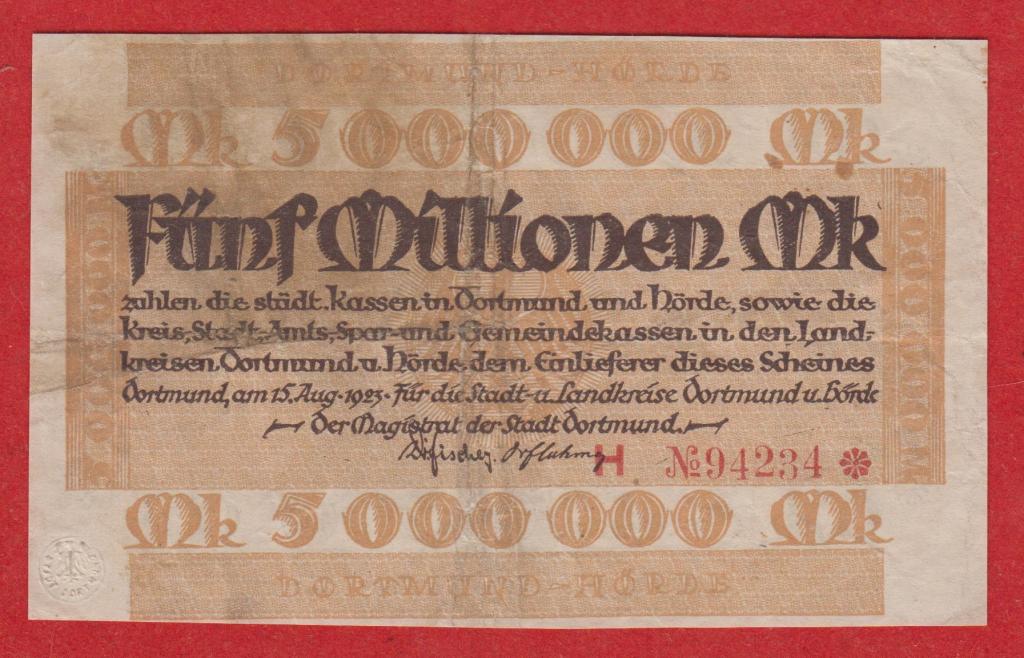 DORTMUND-HÖRDE
Mk 5 000 000 Mk
5 000 000 M
Fünf Millionen Mk
5 000 000 M
zahlen die städt. Kassen in Dortmund und Hörde, sowie die
Kreis-, Stadt-, Amts-, Spar- und Gemeindekassen in den Land-
kreisen Dortmund u. Hörde dem Einlieferer dieses Scheines
Dortmund, am 15. Aug. 1923. Für die Stadt- u. Landkreise Dortmund u. Hörde
Der Magistrat der Stadt Dortmund.
H № 94234
Mk 5 000 000 Mk
DORTMUND-HÖRDE